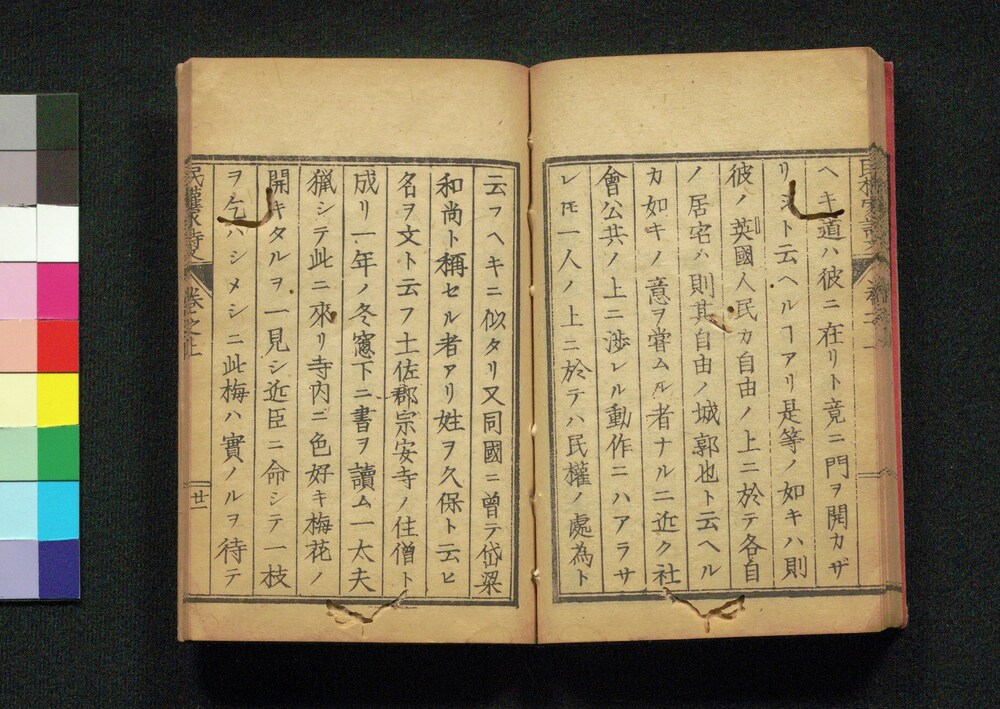 ヘキ道ハ彼ニ在リト竟ニ門ヲ開カザ
リシト云ヘルヿアリ是等ノ如キハ則
彼ノ英國人民カ自由ノ上ニ於テ各自
ノ居宅ハ則其自由ノ城郭也ト云ヘル
カ如キノ意ヲ嘗ムル者ナルニ近ク社
會公共ノ上ニ渉レル動作ニハアラサ
レ𪜈一人ノ上ニ於テハ民權ノ處為ト
云フヘキニ似タリ又同國ニ曾テ岱梁
和尚ト稱セル者アリ姓ヲ久保ト云ヒ
名ヲ文ト云フ土佐郡宗安寺ノ住僧ト
成リ一年ノ冬窓下ニ書ヲ讀ム一太夫
猟シテ此ニ來リ寺内ニ色好キ梅花ノ
開キタルヲ一見シ近臣ニ命シテ一枝
ヲ乞ハシメシニ此梅ハ實ノルヲ待テ
卷之上
廿一